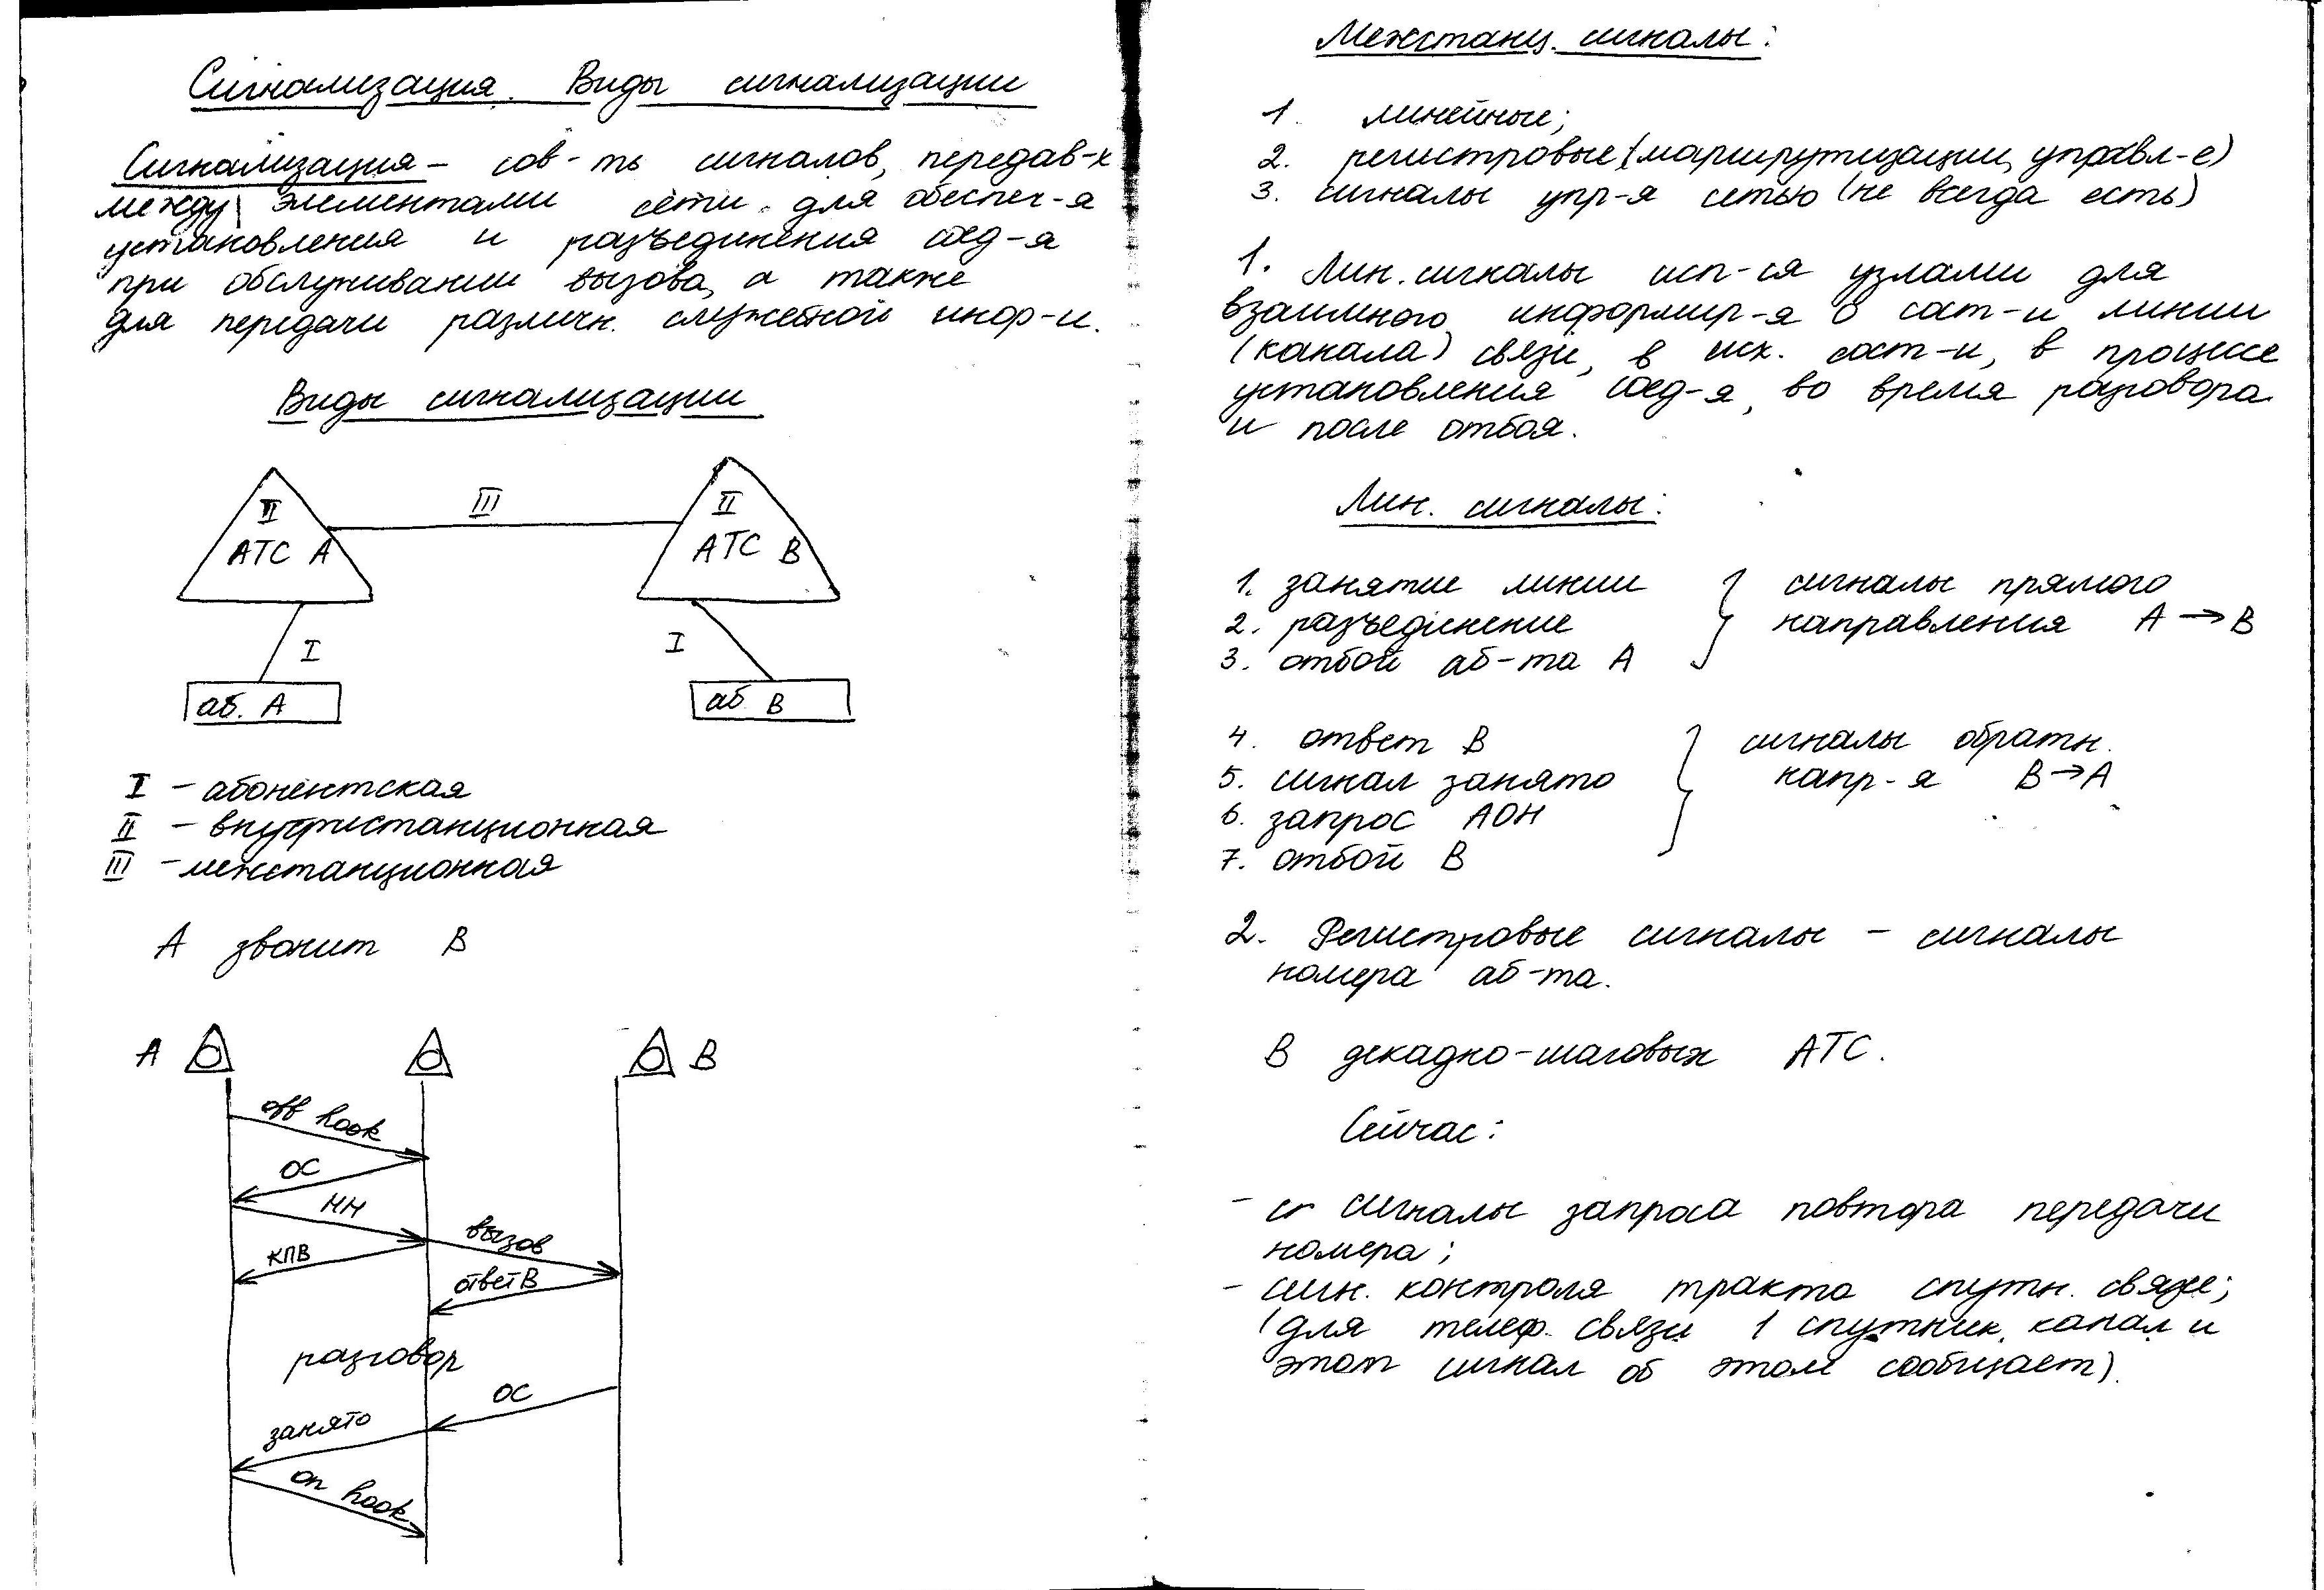 Сигнализация. Виды сигнализации
Сигнализация – сов-ть сигналов, передав-х
между элементами сети для обеспеч-я
установления и разъединения соед-я
при обслуживании вызова, а также
для передачи различн. служебной инф-и.
Виды сигнализации
II
АТС А
III
II
АТС В
I
I
аб. А
аб В
I – абонентская
II – внутристанционная
III – межстанционная
А звонит В
А
В
off hook
ОС
НН
КПВ
вызов
ответВ
разговор
ОС
занято
on hook
Межстанц. сигналы:
1. линейные;
2. регистровые (маршрутизации, управл-е)
3. сигналы упр-я сетью (не всегда есть)
1. Лин. сигналы исп-ся узлами для
взаимного информир-я о сост-и линии
(канала) связи, в исх. сост-и, в процессе
установления соед-я, во время разговора
и после отбоя.
Лин. сигналы:
1. занятие линии
2. разъединение
3. отбой аб-та А
сигналы прямого
направления А → В
4. ответ В
5. сигнал занято
6. запрос АОН
7. отбой В
сигналы обратн.
напр-я В → А
2. Регистровые сигналы – сигналы
номера аб-та.
В декадно-шаговых АТС.
Сейчас:
– сигналы запроса повтора передачи
номера;
– сигн. контроля тракта спутн. связи;
(для телеф. связи 1 спутник. канал и
этот сигнал об этом сообщает).